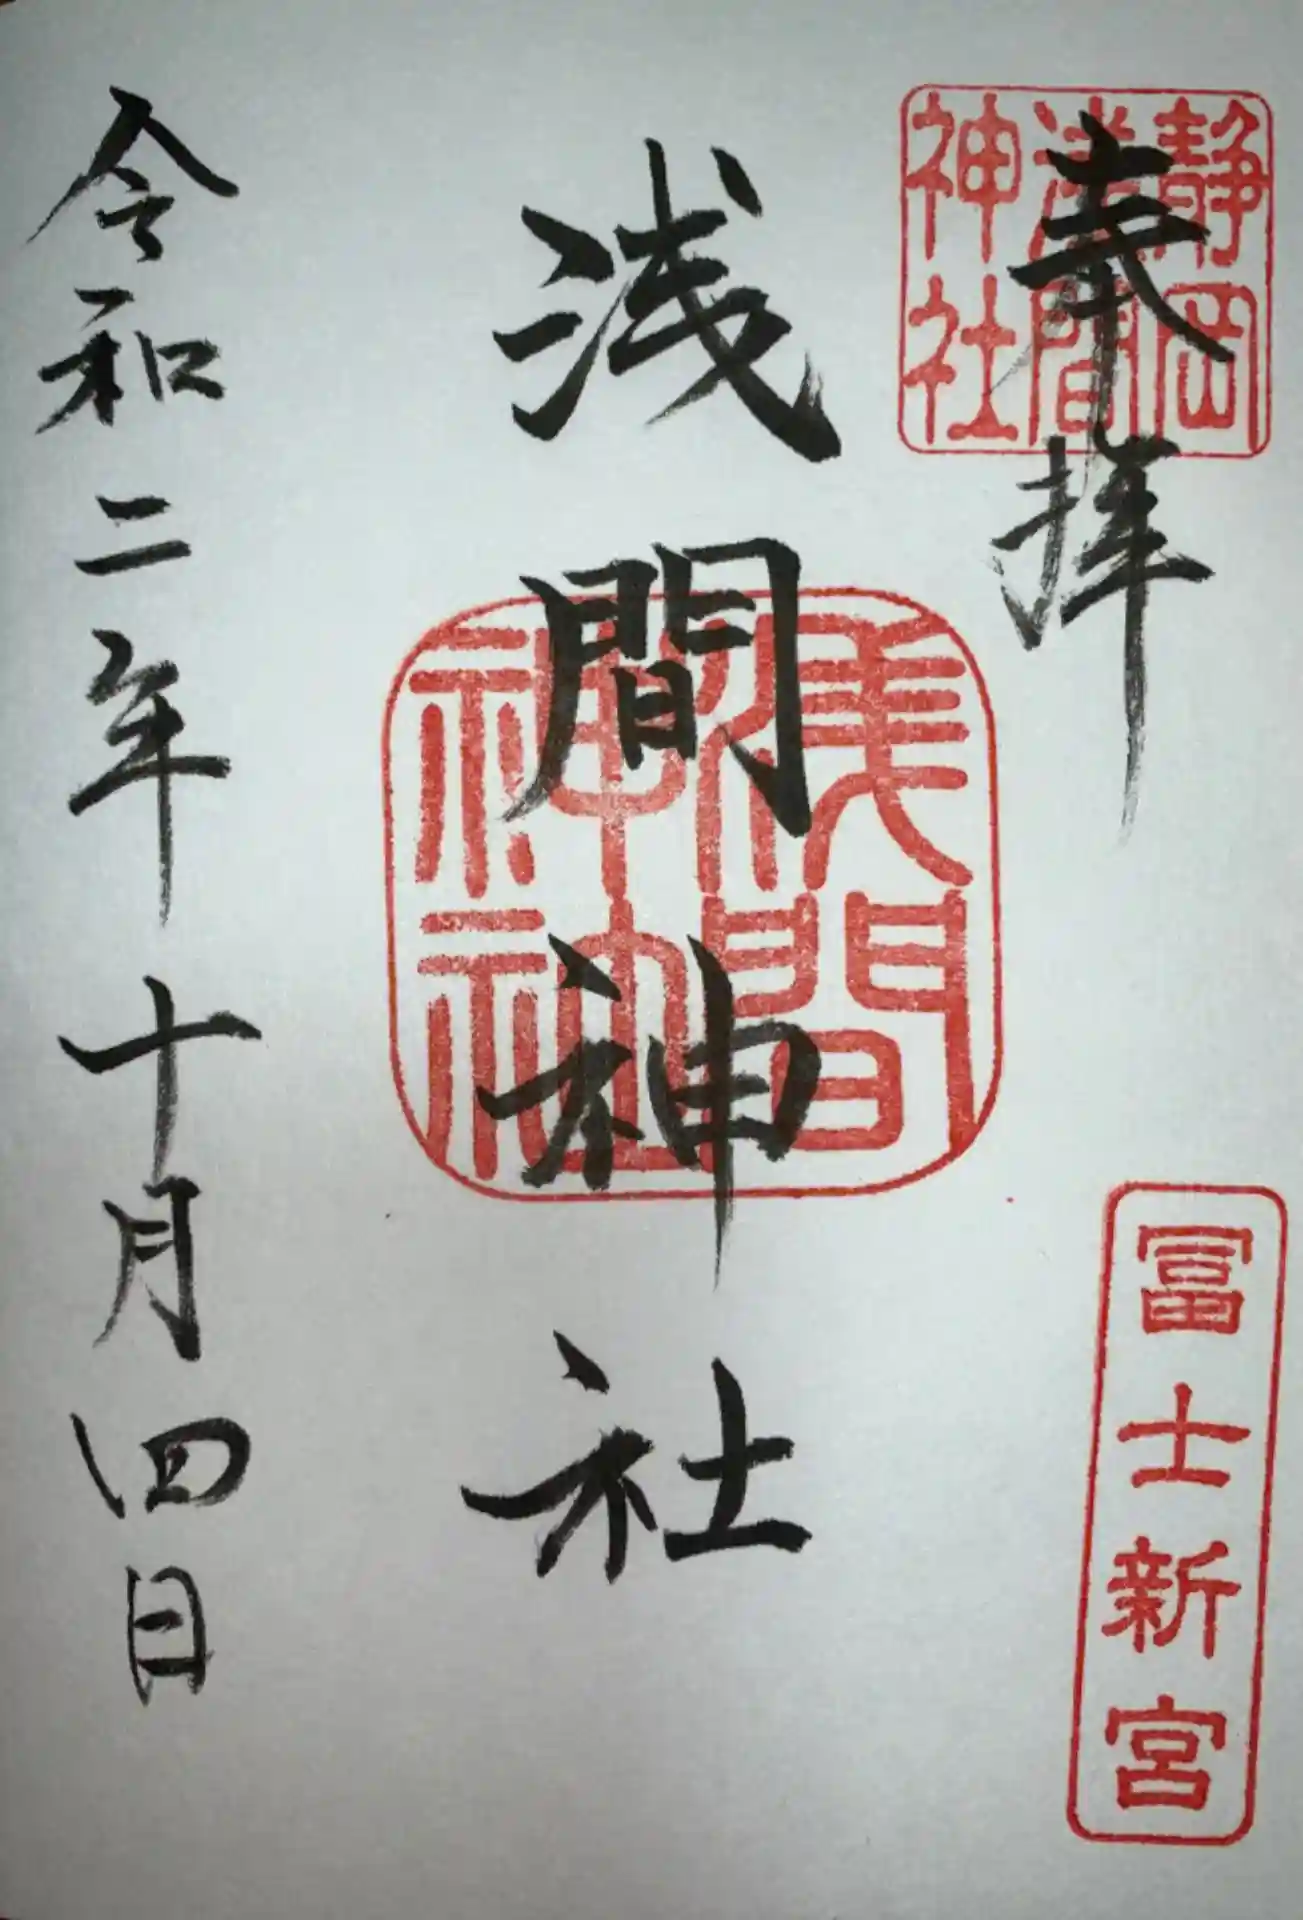 奉拝
静岡
浅間
神社
冨士新宮
浅間神社
浅間
神社
令和二年十月四日